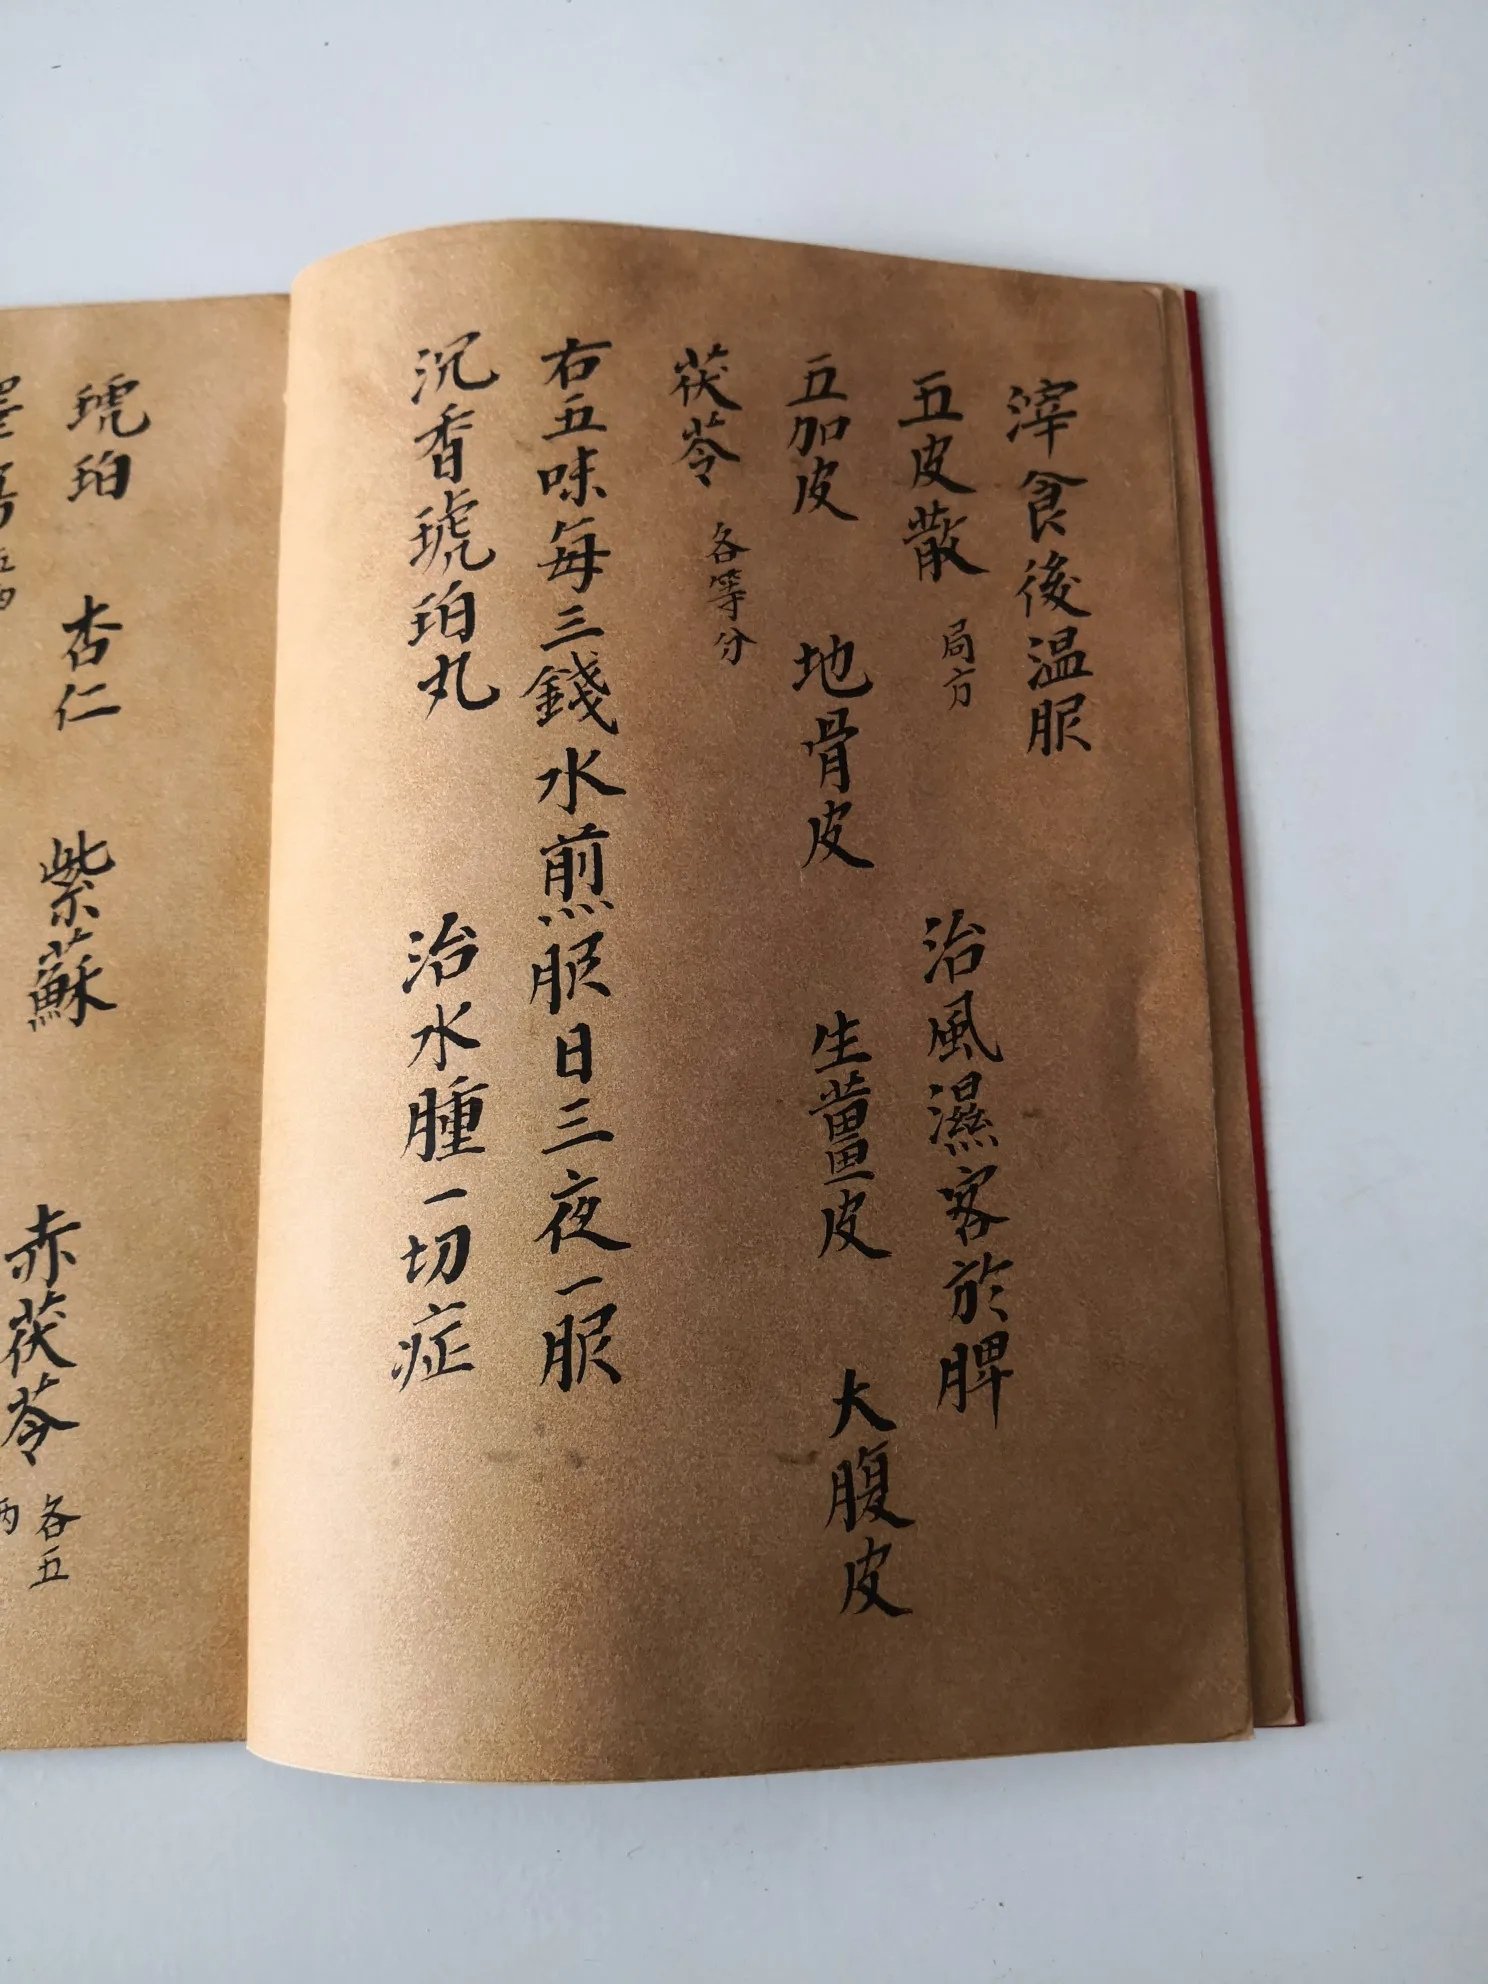 滓食後温服
五皮散 局方 治風濕客於脾
五加皮 地骨皮 生薑皮 大腹皮
茯苓 各等分
右五味每三錢水煎服日三夜一服
沉香琥珀丸 治水腫一切症
琥珀 杏仁 紫蘇 赤茯苓 各五
兩